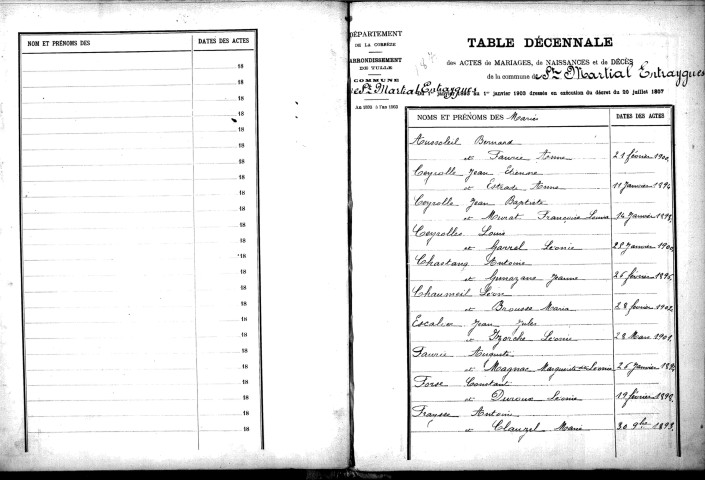 NOM ET PRÉNOMS DES
DATES DES ACTES
18
18
18
18
18
18
18
18
18
18
18
18
18
18
18
18
18
18
DÉPARTEMENT
DE LA CORRÈZE
ARRONDISSEMENT
DE TULLE
COMMUNE
St Martial Entraygues
An 1893 à l'an 1903
TABLE DÉCENNALE
des ACTES de MARIAGES, de NAISSANCES et de DÉCÈS
de la commune de St Martial Entraygues
du 1er janvier au 1er janvier 1903 dressée en exécution du décret du 20 juillet 1807
NOMS ET PRÉNOMS DES Mariés
DATES DES ACTES
Aussoleil Bernard
et Faurie Anne 21 février 1900
Ceyrolle Jean Etienne
et Estrade Anne 11 Janvier 1894
Ceyrolle Jean Baptiste
et Murat Françoise Louise 14 Janvier 1898
Ceyrolles Louis
et Garrel Léonie 28 Janvier 1900
Chastang Antoine
et Jeanne 26 février 1895
Chaumeil Léon
et Brousse Maria 28 février 1902
Escalier Jean Jules
et Léonie 28 Mars 1901
Faurie Auguste
et Magnac Marguerite Léonie 26 Janvier
Forse Constant
et Léonie 19 février 1898
Fraysse Antoine
et Clauzel Marie 30 9bre 1893